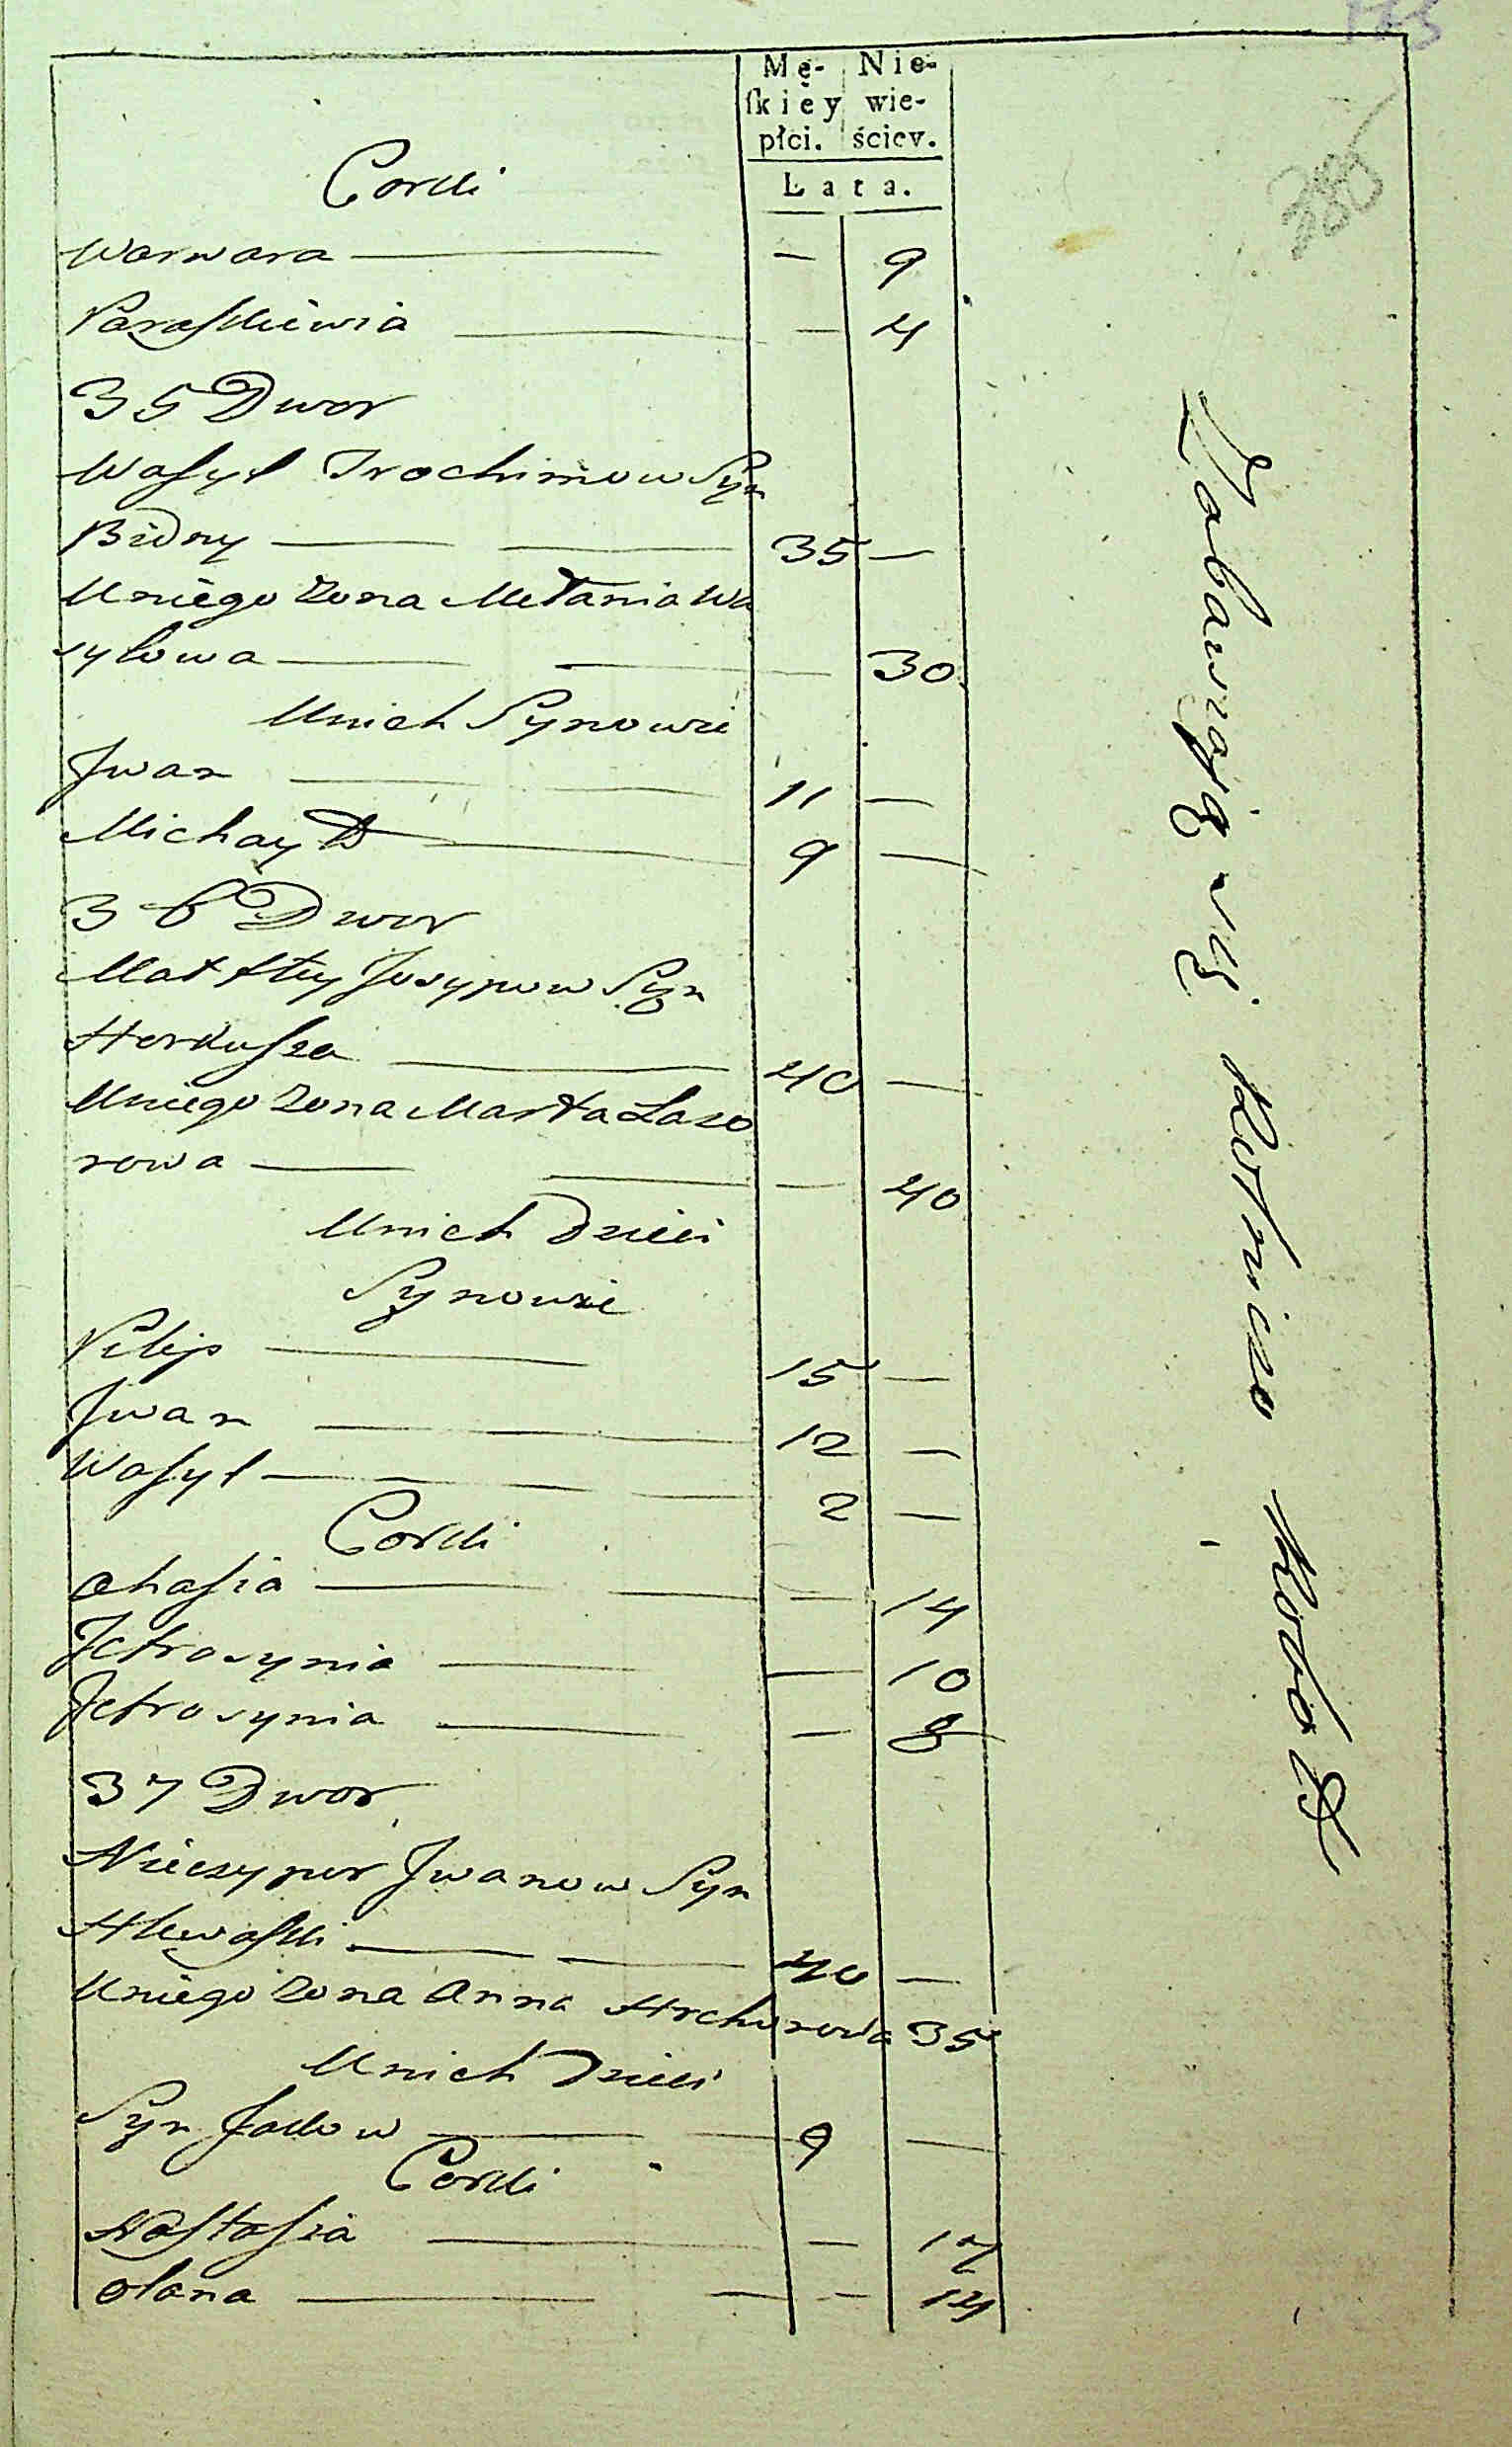 Mę- Nie-
skiey wie-
płci. ściey.
Lata.
Corki
Warwara — 9
Paraskiewia — 4
35 Dwor
Wasyl Trochimow Syn
Bidny 35 —
Uniego Zona Mełania Wa
sylowa — 30
Unich Synowie
Jwan 11 —
Michayło 9 —
36 Dwor
Matfiey Josypow Syn
Harkusza 40 —
Uniego Zona Marta Lazo
rowa — 40
Unich Dzieci
Synowie
Pilip 15 —
Jwan 12 —
Wasyl 2 —
Corki
Ahasia — 14
Jefrosynia — 10
Jefrosynia — 8
37 Dwor
Nieczypor Jwanow Syn
40 —
Uniego Zona Anna 35
Unich Dzieci
Syn Jakow 9 —
Corki
Nastasia — 17
Olana — 14
Zabawiają się Rolnictwo